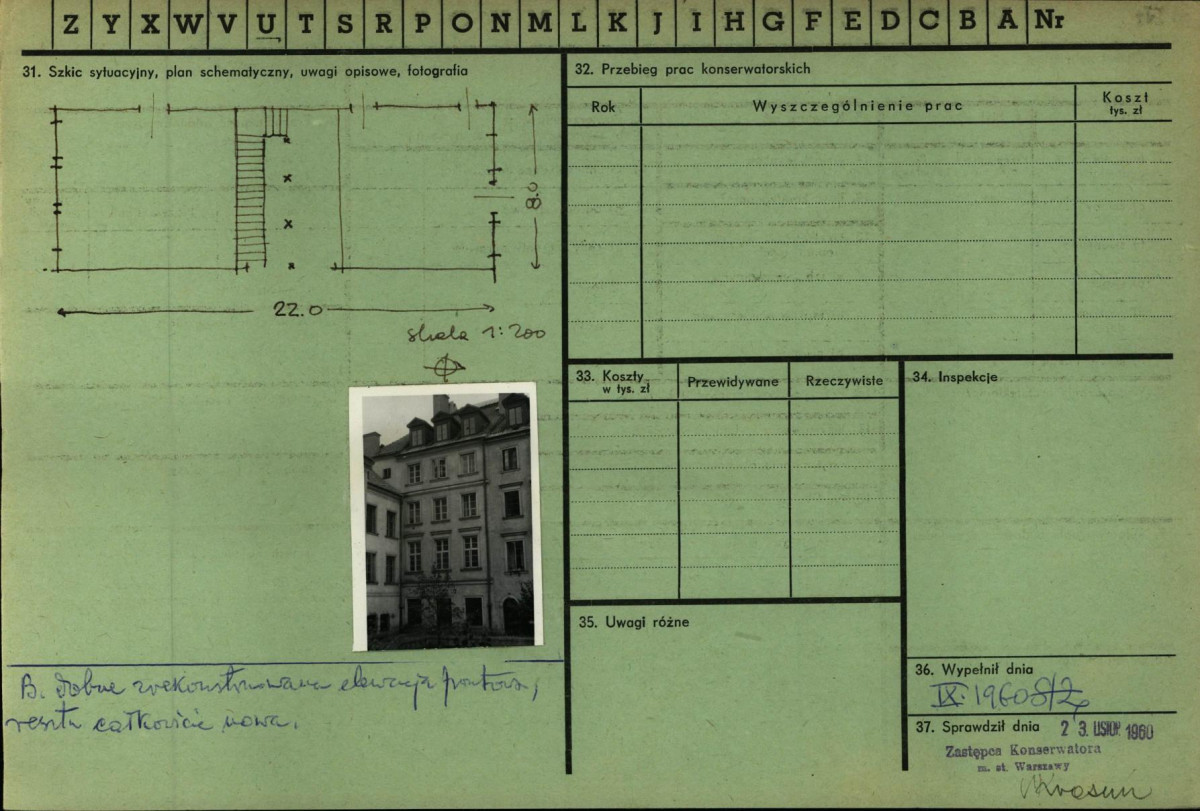 Z Y X W V U T S R P O N M L K J I H G F E D C B A Nr
31. Szkic sytuacyjny, plan schematyczny, uwagi opisowe, fotografia
8.0
22.0
skala 1:200
B. dobrze zrekonstruowana elewacja frontowa,
reszta całkowicie nowa.
32. Przebieg prac konserwatorskich
Rok
Wyszczególnienie prac
Koszt
tys. zł
33. Koszty
w tys. zł
Przewidywane
Rzeczywiste
34. Inspekcje
35. Uwagi różne
36. Wypełnił dnia
IX. 1960
37. Sprawdził dnia 23. LISTOP. 1960
Zastępca Konserwatora
m. st. Warszawy